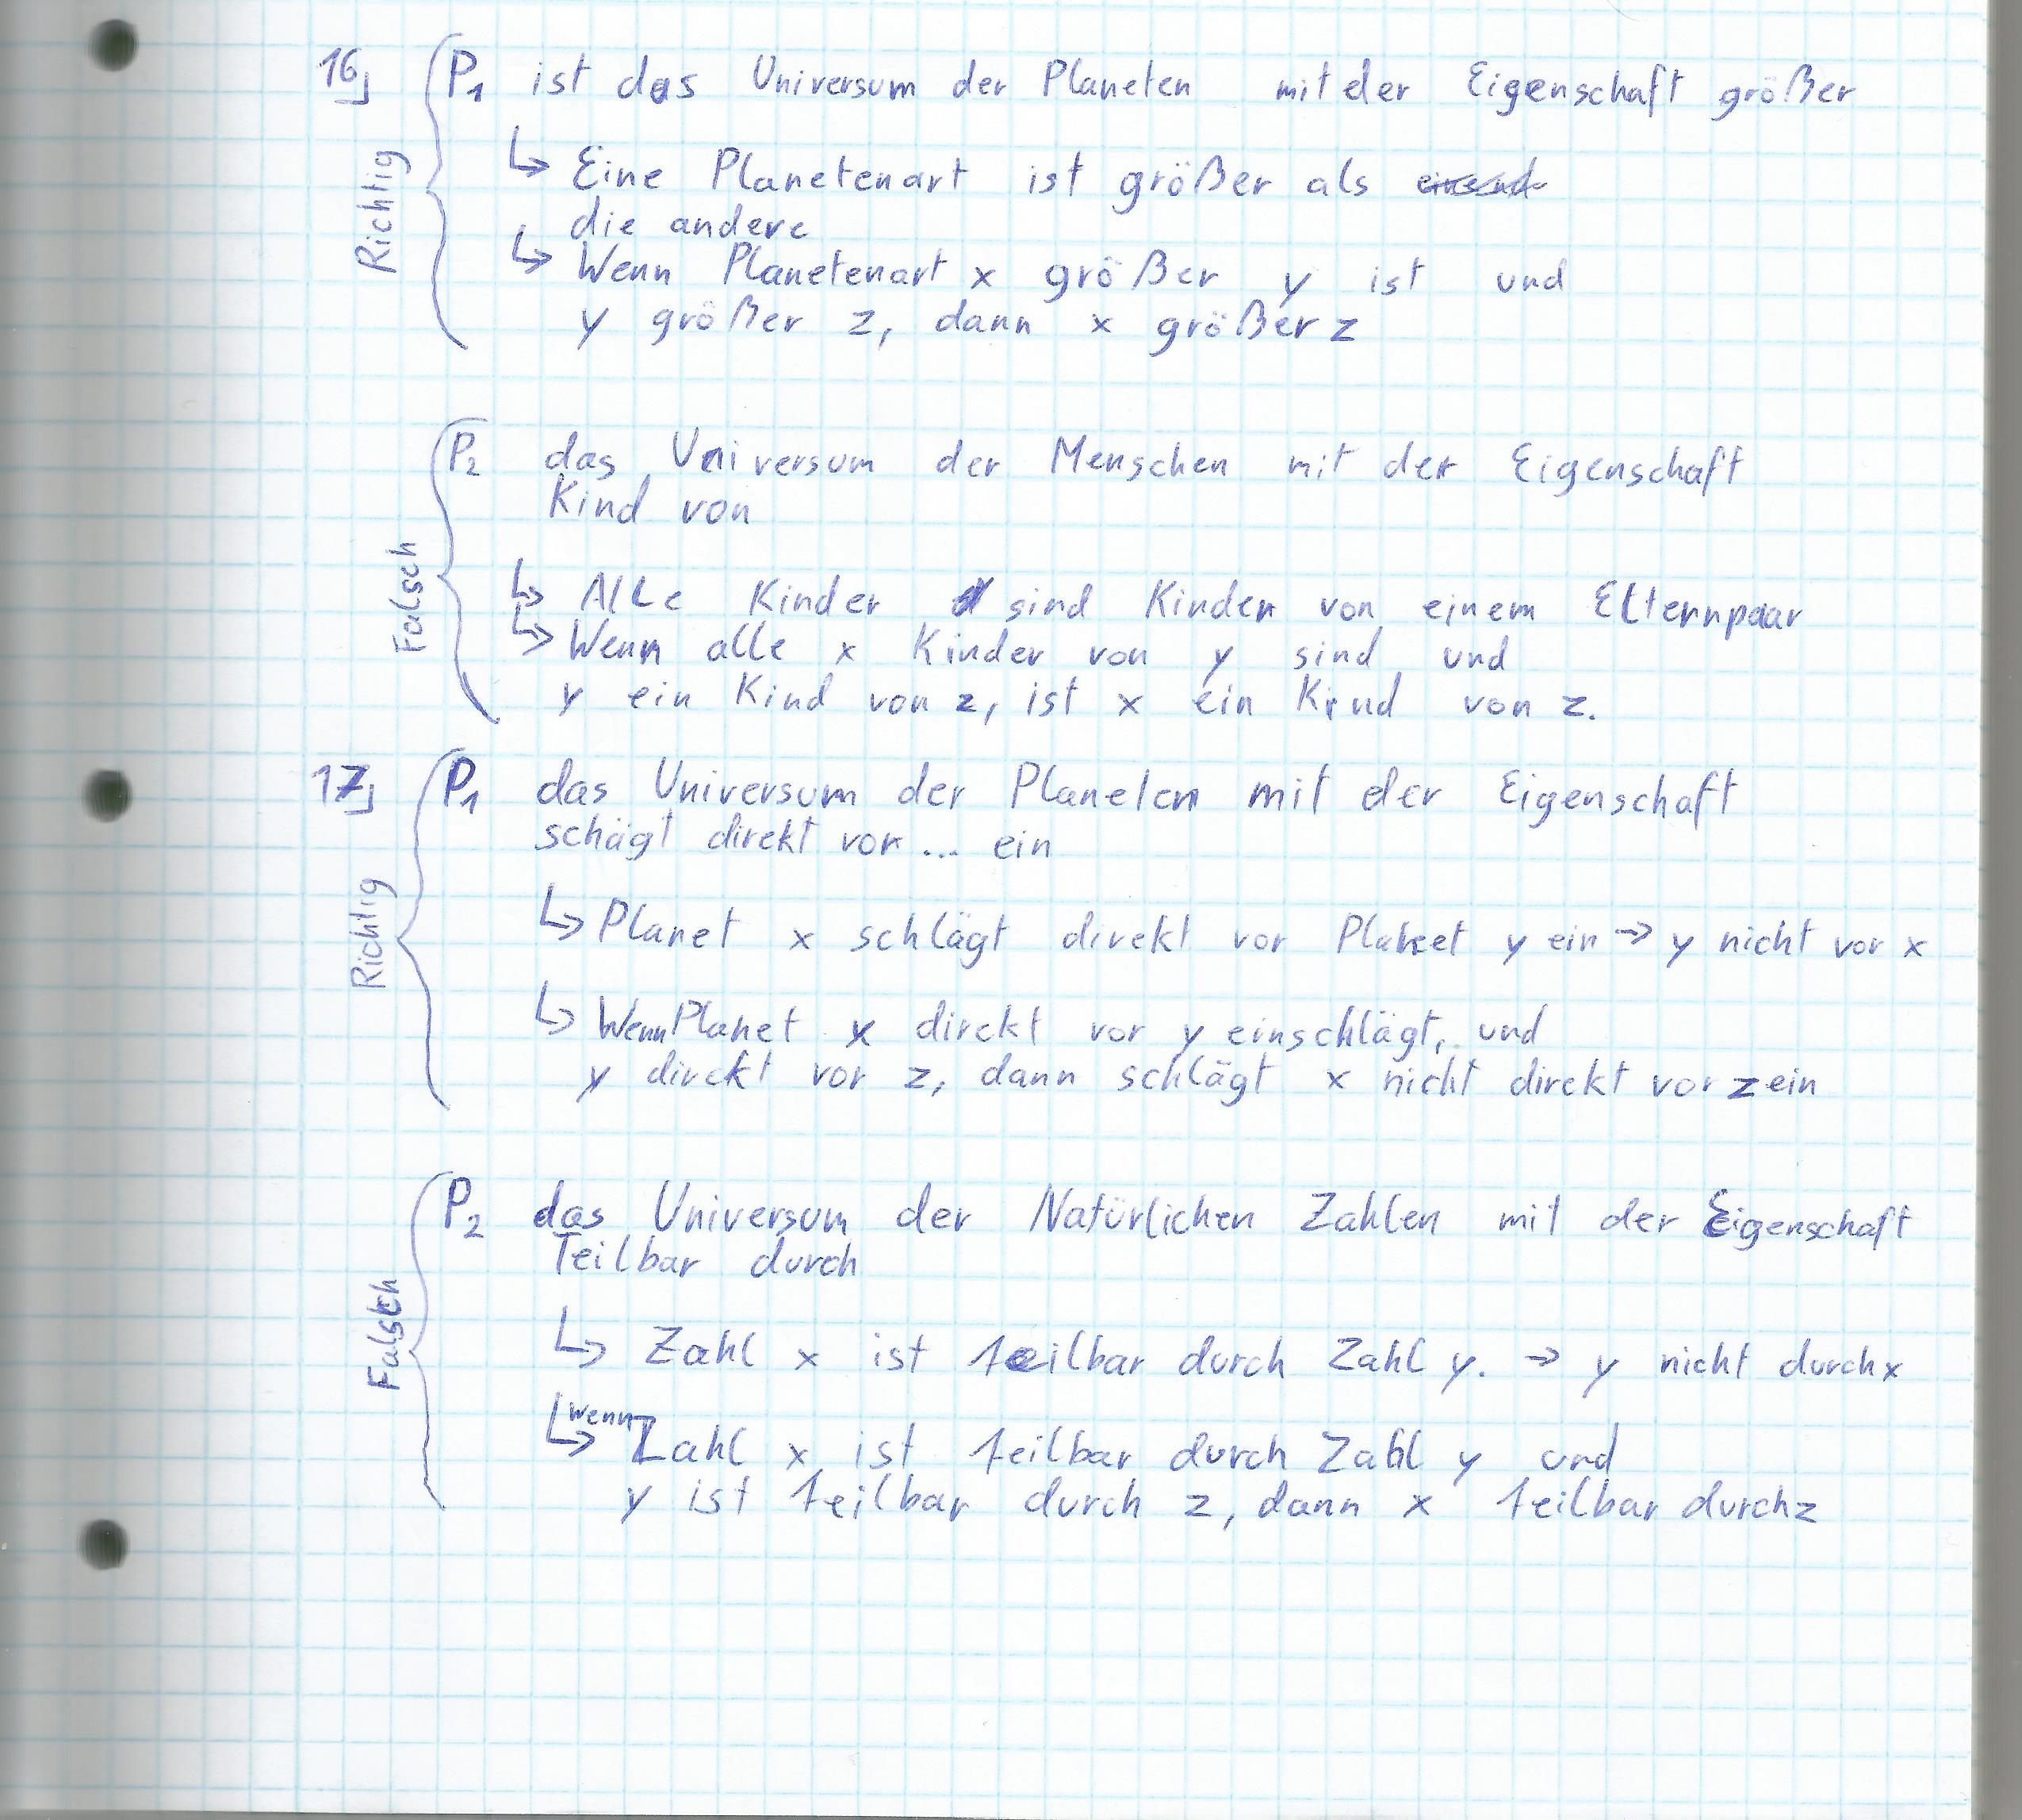 16 P1 ist das Universum der Planeten mit der Eigenschaft größer
Richtig
↳ Eine Planetenart ist größer als
die andere
↳ Wenn Planetenart x größer y ist und
y größer z, dann x größer z
P2 das Universum der Menschen mit der Eigenschaft
Kind von
Falsch
↳ Alle Kinder sind Kinder von einem Elternpaar
↳ Wenn alle x Kinder von y sind und
y ein Kind von z, ist x ein Kind von z.
17 P1 das Universum der Planeten mit der Eigenschaft
schägt direkt vor ... ein
Richtig
↳ Planet x schlägt direkt vor Planet y ein → y nicht vor x
↳ Wenn Planet x direkt vor y einschlägt, und
y direkt vor z, dann schlägt x nicht direkt vor z ein
P2 das Universum der Natürlichen Zahlen mit der Eigenschaft
Teilbar durch
Falsch
↳ Zahl x ist teilbar durch Zahl y. → y nicht durch x
↳ wenn Zahl x ist teilbar durch Zahl y und
y ist teilbar durch z, dann x teilbar durch z